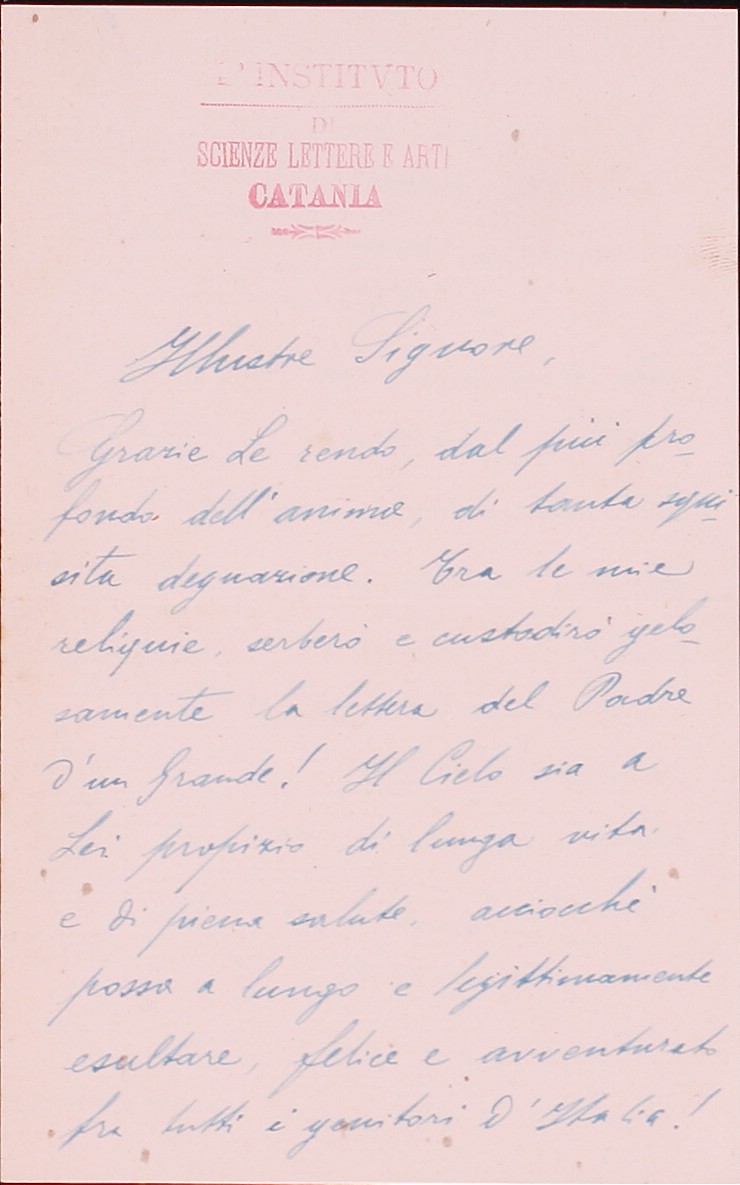 L'INSTITVTO
DI
SCIENZE LETTERE E ARTI
CATANIA
Illustre Signore,
Grazie Le rendo, dal più pro-
fondo dell'animo, di tanta squi-
sita degnazione. Tra le mie
reliquie, serberò e custodirò gelo-
samente la lettera del Padre
d'un Grande! Il Cielo sia a
Lei propizio di lunga vita
e di piena salute, acciocchè
possa a lungo e legittimamente
esultare, felice e avventurato
fra tutti i genitori d'Italia!